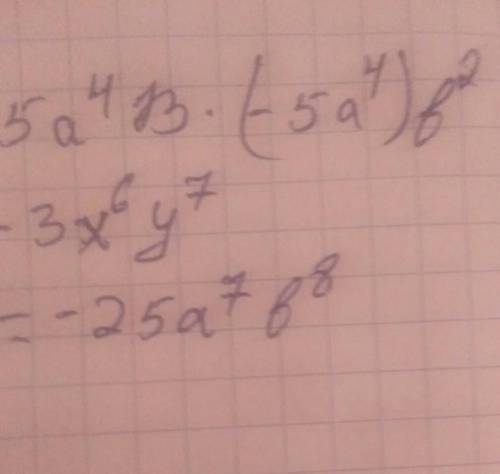 5a⁴B · (-5a⁴)b²
-3x⁶y⁷
= -25a⁷b⁸